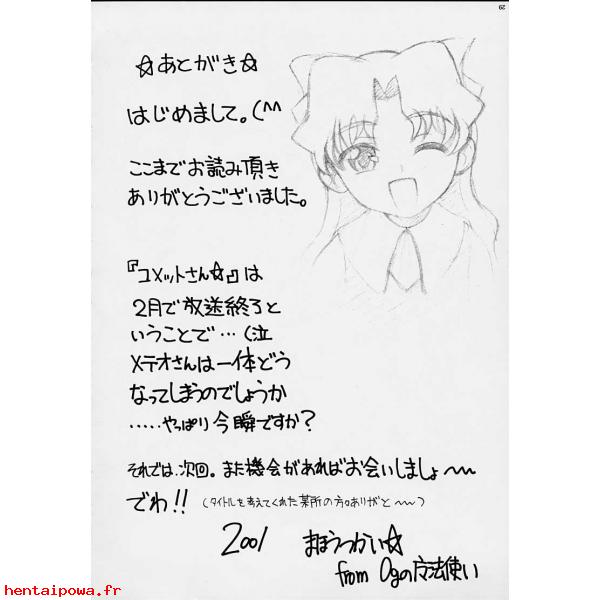 29
☆あとがき☆
はじめまして。(^^
ここまでお読み頂き
ありがとうございました。
『コメットさん☆』は
2月で放送終了と
いうことで…(泣
メテオさんは一体どう
なってしまうのでしょうか
.....やっぱり今瞬ですか?
それでは、次回。また機会があればお会いしましょ〜〜
でわ!!(タイトルを考えてくれた某所の方々ありがと〜〜)
2001 まほうつかい☆
from Ogの魔法使い
hentaipowa.fr